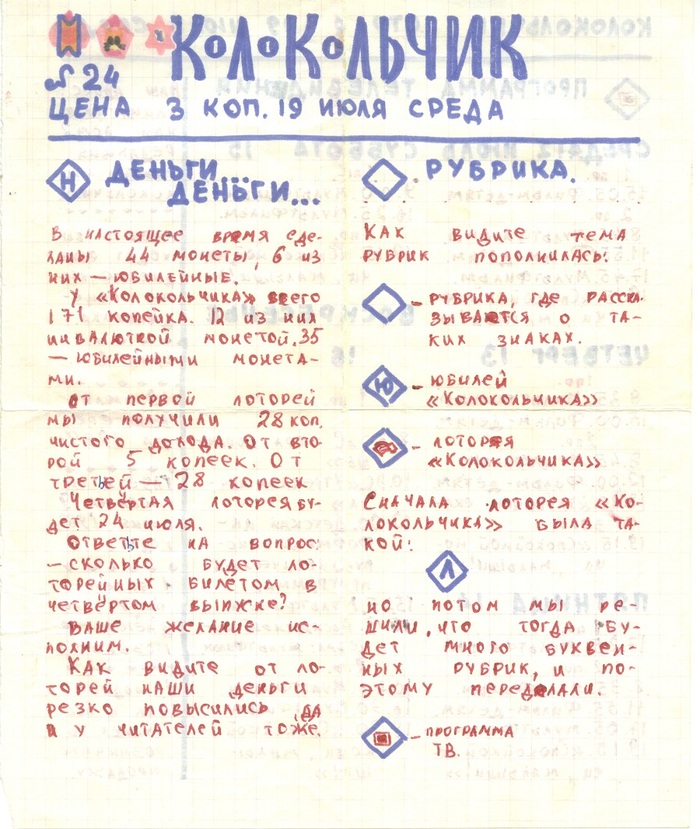 КОЛОКОЛЬЧИК
№ 24
ЦЕНА 3 КОП. 19 ИЮЛЯ СРЕДА
Н ДЕНЬГИ...
ДЕНЬГИ...
В настоящее время сде-
ланы 44 монеты, 6 из
них — юбилейные.
У «Колокольчика» всего
171 копейка. 12 из них
инвалюткой монетой, 35
— юбилейными монета-
ми.
От первой лоторей
мы получили 28 коп.
чистого дохода. От вто-
рой 5 копеек. От
третьей — 28 копеек
Четвёртая лоторея бу-
дет 24 июля.
Ответьте на вопрос:
— сколько будет ло-
торейных билетом в
четвёртом выпуске?
Ваше желание ис-
полним.
Как видите от ло-
торей наши деньги
резко повысились, да
и у читателей тоже.
РУБРИКА.
Как видите тема
рубрик пополнилась:
— рубрика, где расска-
зывается о та-
ких знаках.
Ю — юбилей
«Колокольчика»
— лоторея
«Колокольчика»
Сначала лоторея «Ко-
локольчика» была та-
кой:
Л
но потом мы ре-
шили, что тогда бу-
дет много буквен-
ных рубрик, и по-
этому переделали.
— программа
ТВ.